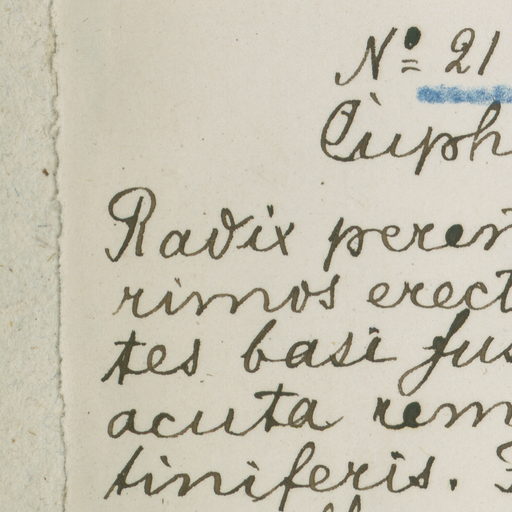 Nº 21
Cuph
Radix peren
rimos erect
tes basi fus
acuta rem
tiniferis.